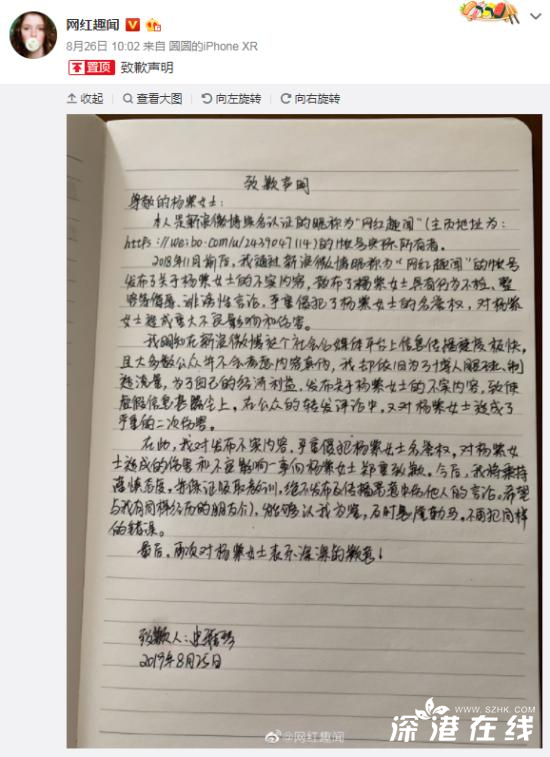 网红趣闻
8月26日 10:02 来自 圆圆的iPhone XR
置顶 致歉声明
收起 查看大图 向左旋转 向右旋转
致歉声明
尊敬的杨紫女士:
本人是新浪微博实名认证的昵称为“网红趣闻”(主页地址为:
https://weibo.com/u/2439047114)的账号实际所有者。
2018年11月前后,我通过新浪微博昵称为“网红趣闻”的账号
发布了关于杨紫女士的不实内容,散布了杨紫女士具有行为不检、整
等侮辱、诽谤性言论,严重侵犯了杨紫女士的名誉权,对杨紫
女士造成重大不良影响和伤害。
我明知在新浪微博这个社会公媒体平台上信息传播速度极快,
且大多数公众并不会考虑内容真伪,我却依旧为了博人眼球、制
造流量,为了自己的经济利益,发布关于杨紫女士的不实内容,致使
虚假信息甚嚣尘上,在公众的转发评论中,又对杨紫女士造成了
严重的二次伤害。
在此,我对发布不实内容,严重侵犯杨紫女士名誉权,对杨紫女
士造成的伤害和不良影响一事向杨紫女士郑重致歉。今后,我将秉持
谨慎态度,并保证吸取教训,绝不发布及传播恶意中伤他人的言论。希望
与我有同样经历的朋友们,能够以我为鉴,及时悬崖勒马,不再犯同样
的错误。
最后,再次对杨紫女士表示深深的歉意!
致歉人:史
2019年8月25日
@网红趣闻
WWW.SZHK.COM
深港在线